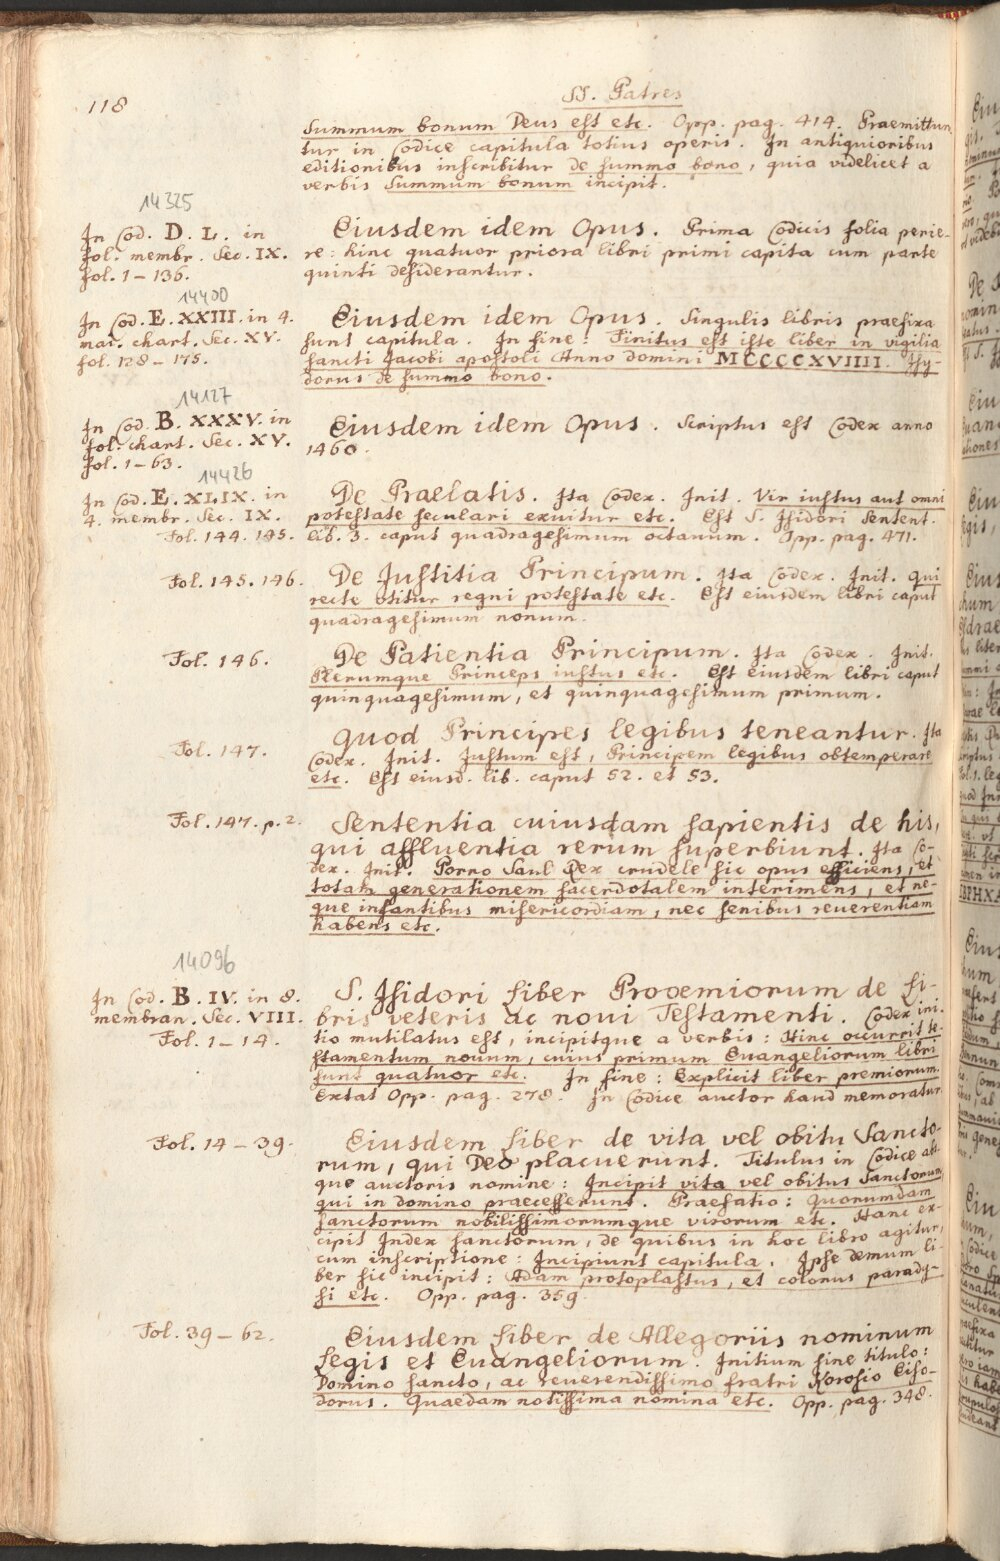 118
SS. Patres
Summum bonum Deus est etc. Opp. pag. 414. Praemittun-
tur in Codice capitula totius operis. In antiquioribus
editionibus inscribitur de summo bono, quia videlicet a
verbis Summum bonum incipit.
14325
In Cod. D. L. in
fol. membr. Sec. IX.
fol. 1–136.
Eiusdem idem Opus. Prima Codicis folia perie-
re: hinc quatuor priora libri primi capita cum parte
quinti desiderantur.
14400
In Cod. E. XXIII. in 4.
mai. chart. Sec. XV.
fol. 128–175.
Eiusdem idem Opus. Singulis libris praefixa
sunt capitula. In fine: Finitus est iste liber in vigilia
sancti Jacobi apostoli Anno domini MCCCCXVIIII. Isy-
dorus de summo bono.
14127
In Cod. B. XXXV. in
fol. chart. Sec. XV.
fol. 1–63.
Eiusdem idem Opus. Scriptus est Codex anno
1460.
14426
In Cod. E. XLIX. in
4. membr. Sec. IX.
Fol. 144. 145.
De Praelatis. Ita Codex. Init. Vir iustus aut omni
potestate seculari exuitur etc. Est S. Isidori Sentent.
lib. 3. caput quadragesimum octauum. Opp. pag. 471.
Fol. 145. 146.
De Justitia Principum. Ita Codex. Init. Qui
recte utitur regni potestate etc. Est eiusdem libri caput
quadragesimum nonum.
Fol. 146.
De Patientia Principum. Ita Codex. Init.
Plerumque Princeps iustus etc. Est eiusdem libri caput
quinquagesimum, et quinquagesimum primum.
Fol. 147.
Quod Principes legibus teneantur. Ita
Codex. Init. Justum est, Principem legibus obtemperare
etc. Est eiusd. lib. caput 52. et 53.
Fol. 147. p. 2.
Sententia cuiusdam sapientis de his,
qui affluentia rerum superbiunt. Ita Co-
dex. Init. Porro Saul Rex crudele sic opus efficiens, et
totam generationem sacerdotalem interimens, et ne-
que infantibus misericordiam, nec senibus reuerentiam
habens etc.
14096
In Cod. B. IV. in 8.
membran. Sec. VIII.
Fol. 1–14.
S. Isidori Liber Prooemiorum de Li-
bris veteris ac noui Testamenti. Codex ini-
tio mutilatus est, incipitque a verbis: Hinc occurrit te-
stamentum nouum, cuius primum Euangeliorum libri
sunt quatuor etc. In fine: Explicit liber premiorum.
Extat Opp. pag. 278. In Codice auctor haud memoratur.
Fol. 14–39.
Eiusdem Liber de vita vel obitu Sancto-
rum, qui Deo placuerunt. Titulus in Codice abs-
que auctoris nomine: Incipit vita vel obitus Sanctorum,
qui in domino praecesserunt. Praefatio: Quorumdam
sanctorum nobilissimorumque virorum etc. Hanc ex-
cipit Index sanctorum, de quibus in hoc libro agitur,
cum inscriptione: Incipiunt capitula. Ipse demum li-
ber sic incipit: Adam protoplastus, et colonus parady-
si etc. Opp. pag. 359.
Fol. 39–62.
Eiusdem Liber de Allegoriis nominum
Legis et Euangeliorum. Initium sine titulo:
Domino sancto, ac reuerendissimo fratri Horosio Eiso-
dorus. Quaedam notissima nomina etc. Opp. pag. 348.